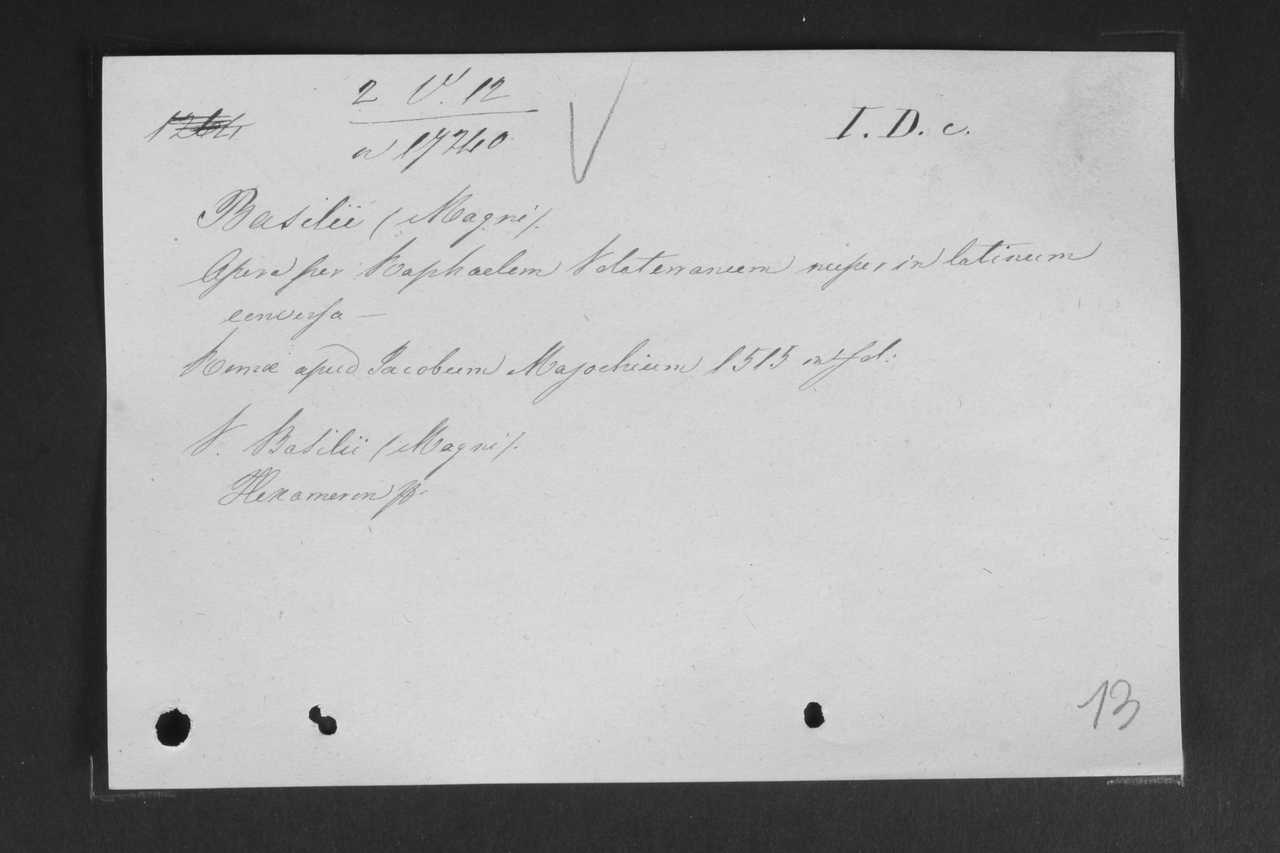 2 V. 12
I. D. c.
17740
Basilii (Magni).
Opera per Raphaelem Volaterraneum nuper in latinum
conversa —
Romæ apud Jacobum Mazochium 1515 in fol:
V. Basilii (Magni).
Hexameron
13